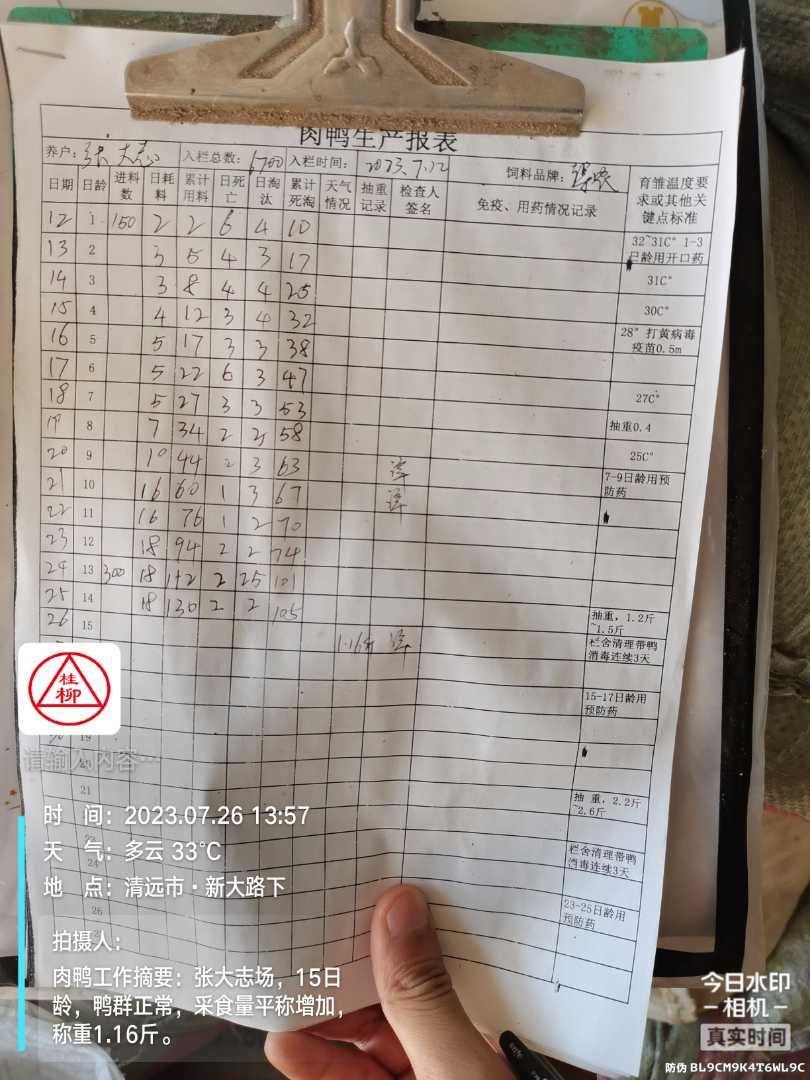 肉鸭生产报表
养户: 张大志 入栏总数: 6700 入栏时间: 2023.7.12 饲料品牌:
日期 日龄 进料数 日耗料 累计用料 日死亡 日淘汰 累计死淘 天气情况 抽重记录 检查人签名 免疫、用药情况记录 育雏温度要求或其他关键点标准
12 1 150 2 2 6 4 10
32~31C° 1-3日龄用开口药
13 2 3 5 4 3 17
14 3 3 8 4 4 25 31C°
15 4 4 12 3 4 32 30C°
16 5 5 17 3 3 38 28° 打黄病毒疫苗0.5m
17 6 5 22 6 3 47
18 7 5 27 3 3 53 27C°
19 8 7 34 2 2 58 抽重0.4
20 9 10 44 2 3 63 25C°
21 10 16 60 1 3 67 7-9日龄用预防药
22 11 16 76 1 2 70
23 12 18 94 2 2 74
24 13 300 18 112 2 25 101
25 14 18 130 2 2 105
26 15 1.16斤 抽重, 1.2斤~1.5斤
栏舍清理带鸭消毒连续3天
15-17日龄用预防药
19
20
21
抽 重, 2.2斤~2.6斤
23
24
栏舍清理带鸭消毒连续3天
26
23-25日龄用预防药
桂柳
请输入内容…
时 间: 2023.07.26 13:57
天 气: 多云 33℃
地 点: 清远市·新大路下
拍摄人:
肉鸭工作摘要: 张大志场, 15日
龄, 鸭群正常, 采食量平称增加,
称重1.16斤。
今日水印
-相机-
真实时间
防伪 BL9CM9K4T6WL9C